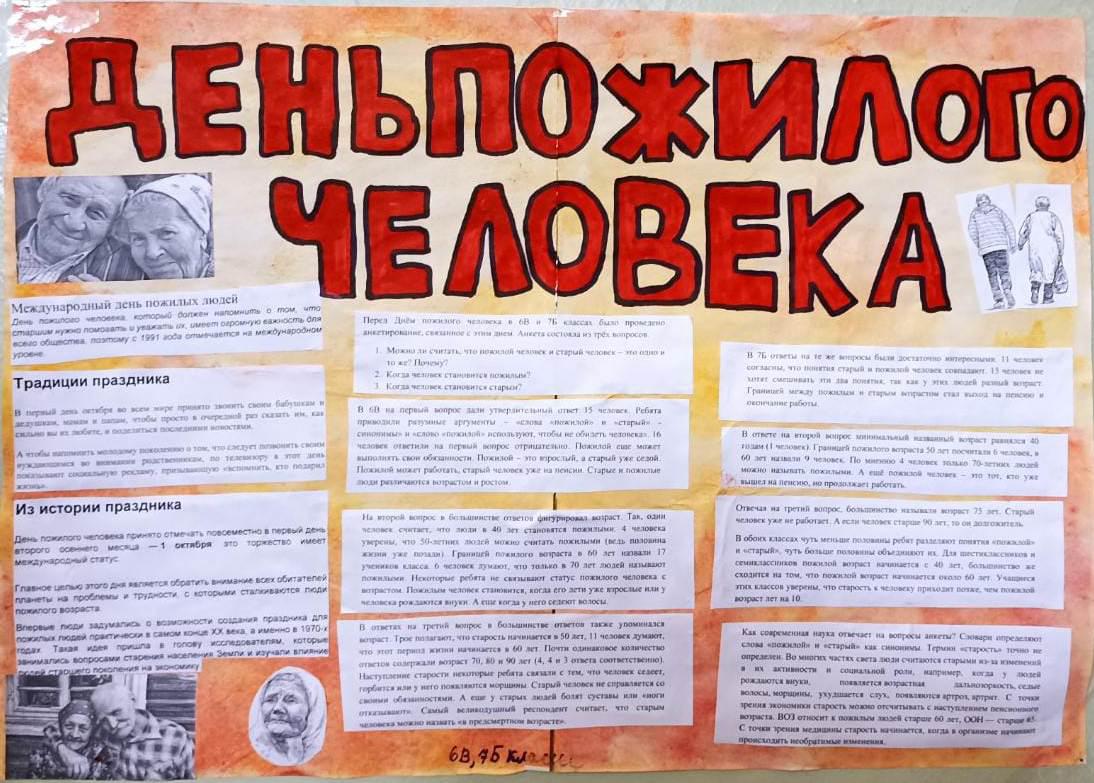 ДЕНЬ ПОЖИЛОГО
ЧЕЛОВЕКА
Международный день пожилых людей
День пожилого человека, который должен напомнить о том, что
старшим нужно помогать и уважать их, имеет огромную важность для
всего общества, поэтому с 1991 года отмечается на международном
уровне.
Традиции праздника
В первый день октября во всем мире принято звонить своим бабушкам и
дедушкам, мамам и папам, чтобы просто в очередной раз сказать им, как
сильно вы их любите, и поделиться последними новостями.
А чтобы напомнить молодому поколению о том, что следует позвонить своим
нуждающимся во внимании родственникам, по телевизору в этот день
показывают социальную рекламу, призывающую «вспомнить, кто подарил
жизнь».
Из истории праздника
День пожилого человека принято отмечать повсеместно в первый день
второго осеннего месяца — 1 октября это торжество имеет
международный статус.
Главное целью этого дня является обратить внимание всех обитателей
планеты на проблемы и трудности, с которыми сталкиваются люди
пожилого возраста.
Впервые люди задумались о возможности создания праздника для
пожилых людей практически в самом конце XX века, а именно в 1970-х
годах. Такая идея пришла в голову исследователям, которые
занимались вопросами старения населения Земли и изучали влияние
людей старшего поколения на экономику
Перед Днём пожилого человека в 6В и 7Б классах было проведено
анкетирование, связанное с этим днем. Анкета состояла из трёх вопросов.
1. Можно ли считать, что пожилой человек и старый человек – это одно и
то же? Почему?
2. Когда человек становится пожилым?
3. Когда человек становится старым?
В 6В на первый вопрос дали утвердительный ответ 15 человек. Ребята
приводили разумные аргументы – «слова «пожилой» и «старый» -
синонимы» и «слово «пожилой» используют, чтобы не обидеть человека». 16
человек ответили на первый вопрос отрицательно. Пожилой еще может
выполнять свои обязанности. Пожилой – это взрослый, а старый уже седой.
Пожилой может работать, старый человек уже на пенсии. Старые и пожилые
люди различаются возрастом и ростом.
На второй вопрос в большинстве ответов фигурировал возраст. Так, один
человек считает, что люди в 40 лет становятся пожилыми. 4 человека
уверены, что 50-летних людей можно считать пожилыми (ведь половина
жизни уже позади). Границей пожилого возраста в 60 лет назвали 17
учеников класса. 6 человек думают, что только в 70 лет людей называют
пожилыми. Некоторые ребята не связывают статус пожилого человека с
возрастом. Пожилым человек становится, когда его дети уже взрослые или у
человека рождаются внуки. А еще когда у него седеют волосы.
В ответах на третий вопрос в большинстве ответов также упоминался
возраст. Трое полагают, что старость начинается в 50 лет, 11 человек думают,
что этот период жизни начинается в 60 лет. Почти одинаковое количество
ответов содержали возраст 70, 80 и 90 лет (4, 4 и 3 ответа соответственно).
Наступление старости некоторые ребята связали с тем, что человек седеет,
горбится или у него появляются морщины. Старый человек не справляется со
своими обязанностями. А еще у старых людей болят суставы или «ноги
отказывают». Самый великодушный респондент считает, что старым
человека можно назвать «в предсмертном возрасте».
В 7Б ответы на те же вопросы были достаточно интересными. 11 человек
согласны, что понятия старый и пожилой человек совпадают. 15 человек не
хотят смешивать эти два понятия, так как у этих людей разный возраст.
Границей между пожилым и старым возрастом стал выход на пенсию и
окончание работы.
В ответе на второй вопрос минимальный названный возраст равнялся 40
годам (1 человек). Границей пожилого возраста 50 лет посчитали 6 человек, в
60 лет назвали 9 человек. По мнению 4 человек только 70-летних людей
можно называть пожилыми. А ещё пожилой человек – это тот, кто уже
вышел на пенсию, но продолжает работать.
Отвечая на третий вопрос, большинство называли возраст 75 лет. Старый
человек уже не работает. А если человек старше 90 лет, то он долгожитель.
В обоих классах чуть меньше половины ребят разделяют понятия «пожилой»
и «старый», чуть больше половины объединяют их. Для шестиклассников и
семиклассников пожилой возраст начинается с 40 лет, большинство же
сходится на том, что пожилой возраст начинается около 60 лет. Учащиеся
этих классов уверены, что старость к человеку приходит позже, чем пожилой
возраст лет на 10.
Как современная наука отвечает на вопросы анкеты? Словари определяют
слова «пожилой» и «старый» как синонимы. Термин «старость» точно не
определен. Во многих частях света люди считаются старыми из-за изменений
в их активности и социальной роли, например, когда у людей
рождаются внуки, появляется возрастная дальнозоркость, седые
волосы, морщины, ухудшается слух, появляются артроз, артрит. С точки
зрения экономики старость можно отсчитывать с наступлением пенсионного
возраста. ВОЗ относит к пожилым людей старше 60 лет, ООН — старше 65.
С точки зрения медицины старость начинается, когда в организме начинают
происходить необратимые изменения.
6В, 7Б классы